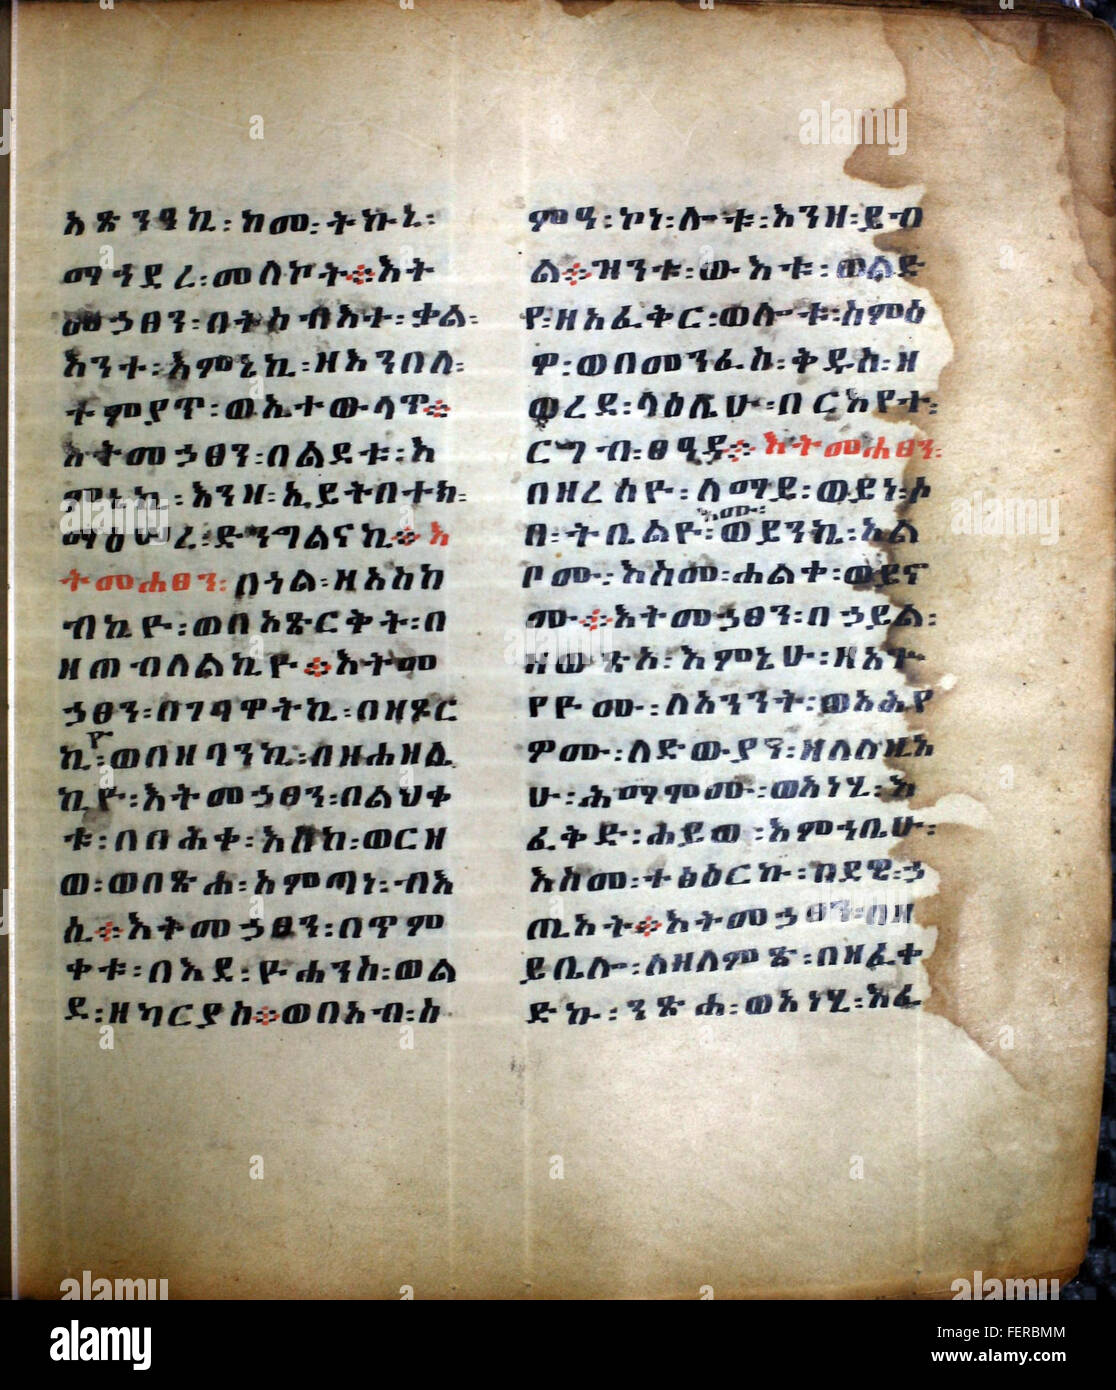 አጽንዓኪ፡ከመ፡ትኩኒ፡
ማኅደረ፡መለኮት፨እት
መኃፀን፡በትስብእተ፡ቃል፡
እንተ፡እምኔኪ፡ዘእንበለ፡
ተምያጥ፡ወኢተውላጥ፨
እትመኃፀን፡በልደቱ፡እ
ምኔኪ፡እንዘ፡ኢይትበተክ፡
ማዕሠረ፡ድንግልናኪ፨እ
ትመሐፀን፡በኀል፡ዘአስከ
ብኪዮ፡ወበአጽርቅት፡በ
ዘጠብለልኪዮ፨እትመ
ኃፀን፡በገባዋትኪ፡በዘፆር
ኪ፡ወበዘባንኪ፡በዘሐዘል
ዮ
ኪዮ፡እትመኃፀን፡በልህቀ
ቱ፡በበሕቀ፡እስከ፡ወርዘ
ወ፡ወበጽሐ፡አምጣነ፡ብእ
ሲ፨እትመኃፀን፡በጥም
ቀቱ፡በእደ፡ዮሐንስ፡ወል
ደ፡ዘካርያስ፨ወበአብ፡ስ
ምዓ፡ኮነ፡ሎቱ፡እንዘ፡ይብ
ል፨ዝንቱ፡ውእቱ፡ወልድ
የ፡ዘአፈቅር፡ወሎቱ፡ስምዕ
ዎ፡ወበመንፈስ፡ቅዱስ፡ዘ
ወረደ፡ላዕሌሁ፡በርእየተ፡
ርግብ፡ፀዓዳ፨እትመሐፀን፡
በዘረሰዮ፡ለማይ፡ወይነ፡ሶ
እሙ፡
በ፡ትቤልዮ፡ወይንኪ፡አል
ቦሙ፡እስመ፡ሐልቀ፡ወይኖ
ሙ፨እትመኃፀን፡በኃይል፡
ዘወጽአ፡እምኔሁ፡ዘአሥ
የዮሙ፡ለአንንት፡ወአሕየ
ዎሙ፡ለድውያን፡ዘለሊሁአ
ሁ፡ሕማምሙ፡ወአነሂ፡እ
ፈቅድ፡ሐይወ፡እምኀቤሁ፡
እስመ፡ተፅዕርኩ፡በደዌ፡ኃ
ጢአት፨እትመኃፀን፡በዘ
ይቤሎ፡ለዘለምጽ፡በዘፈቀ
ድኩ፡ንጽሐ፡ወአነሂ፡እፈ
alamy
Image ID: FERBMM
www.alamy.com